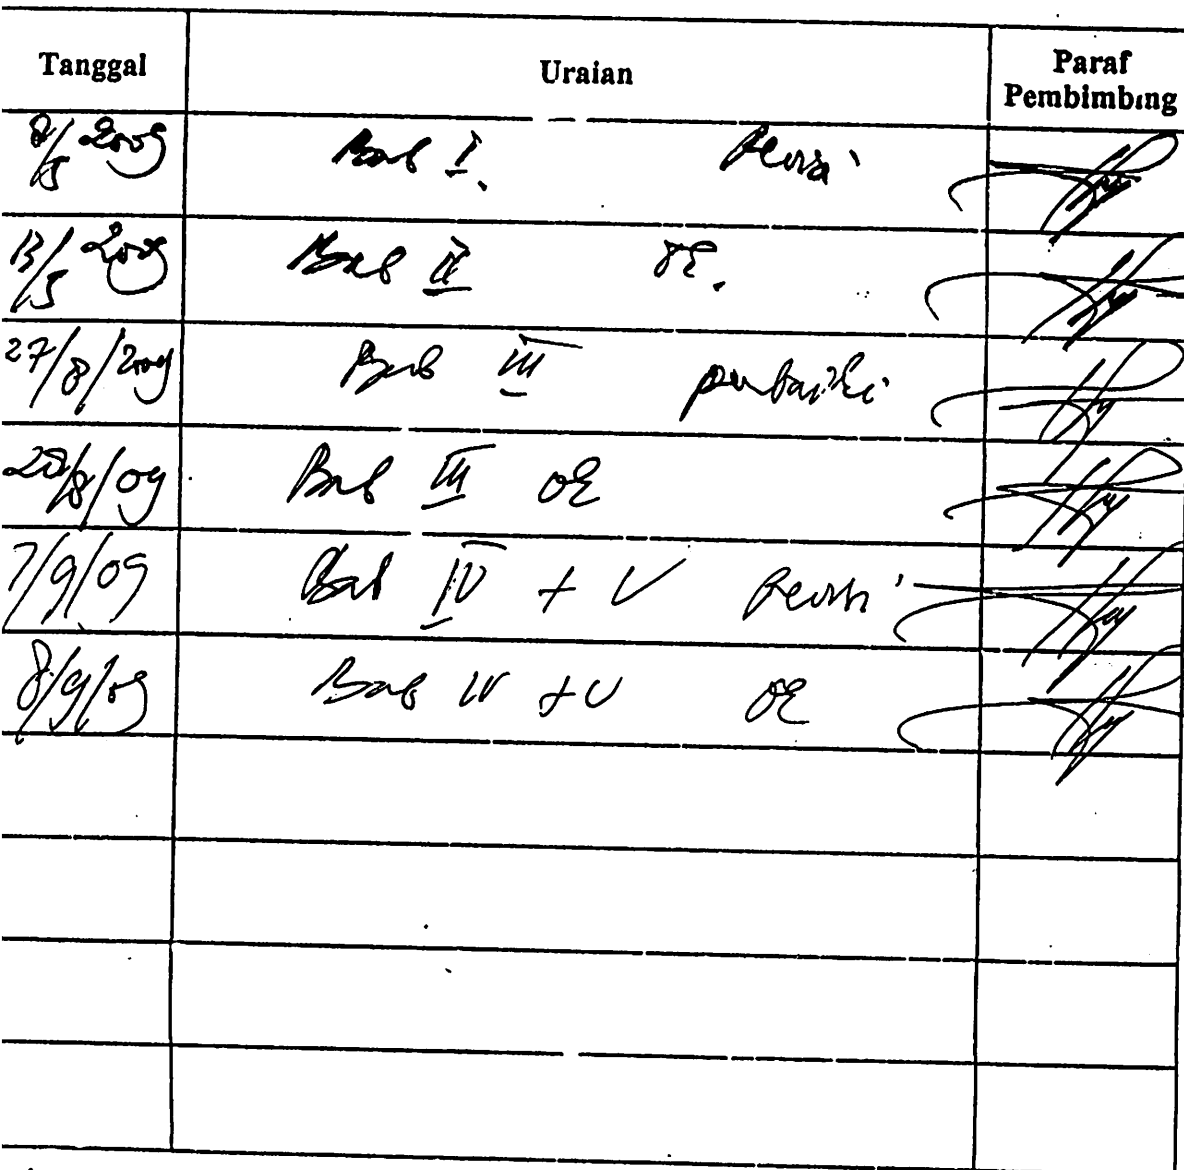 Tanggal Uraian Paraf Pembimbing
8/5 2009 Bab I. Revisi
13/5 2009 Bab II OK.
27/8/2009 Bab III perbaiki
28/8/09 Bab III OK
7/9/09 Bab IV + V Revisi
8/9/09 Bab IV + V OK